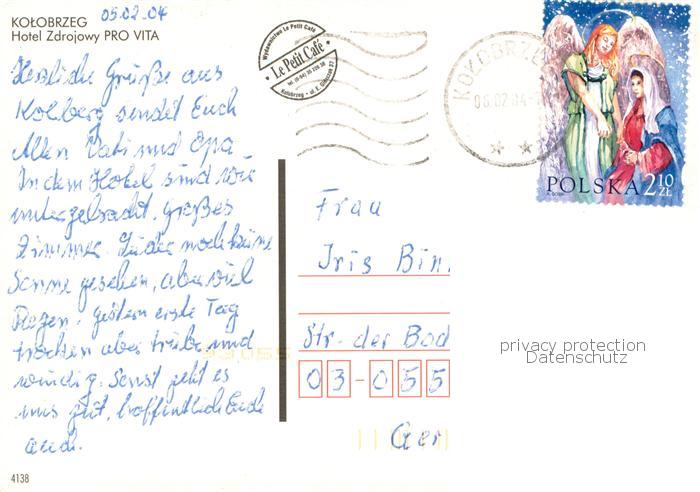 KOŁOBRZEG
05.02.04
Hotel Zdrojowy PRO VITA
Herzliche Grüße aus
Kolberg sendet Euch
Allen Vati und Opa
In dem Hotel sind wir
untergebracht, großes
Zimmer. Leider noch keine
Sonne gesehen, aber viel
Regen, gestern erste Tag
trocken aber trübe und
windig. Sonst geht es
uns gut, hoffentlich Euch
auch.
4138
Wydawnictwo Le Petit Café
Le Petit Café
KOŁOBRZEG
06.02.04
POLSKA 2 10 ZŁ
Frau
Iris Bin
Str. der Bod
03-055
Ger
93055
privacy protection
Datenschutz